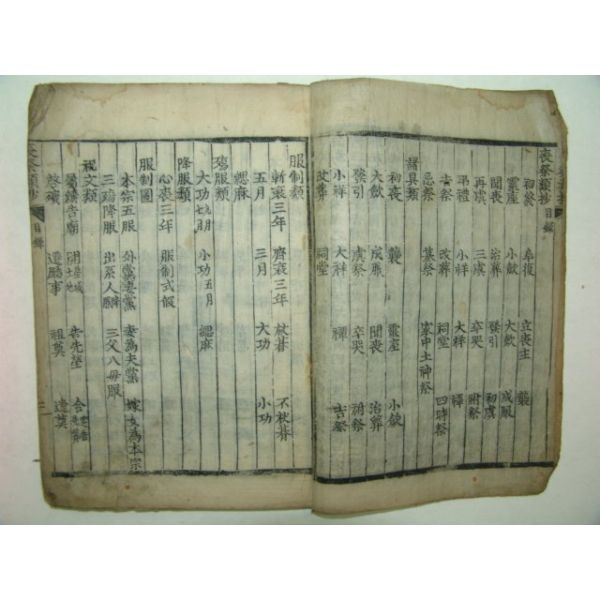 喪祭類抄目錄
初終 皐復 立喪主 襲
靈座 小斂 大斂 成服
聞喪 治葬 發引 初虞
再虞 三虞 卒哭 祔祭
弔禮 小祥 大祥 禫
吉祭 改葬 祠堂 四時祭
忌祭 墓祭 家中土神祭
諸具類
初喪 襲 靈座 小斂
大斂 成服 聞喪 治葬
發引 虞祭 卒哭 祔祭
小祥 大祥 禫 吉祭
改葬 祠堂
服制類
斬衰三年 齊衰三年 杖朞 不杖朞
五月 三月 大功 小功
緦麻
殤服類
大功七月九月 小功五月 緦麻
降服類
心喪三年 服制式假
服制圖
本宗五服 外黨妻黨 妻為夫黨 嫁女為本宗
三殤降服 出系人 三父八母服
祝文類
告先塋
啓殯 遷 祖奠 遣奠
目錄